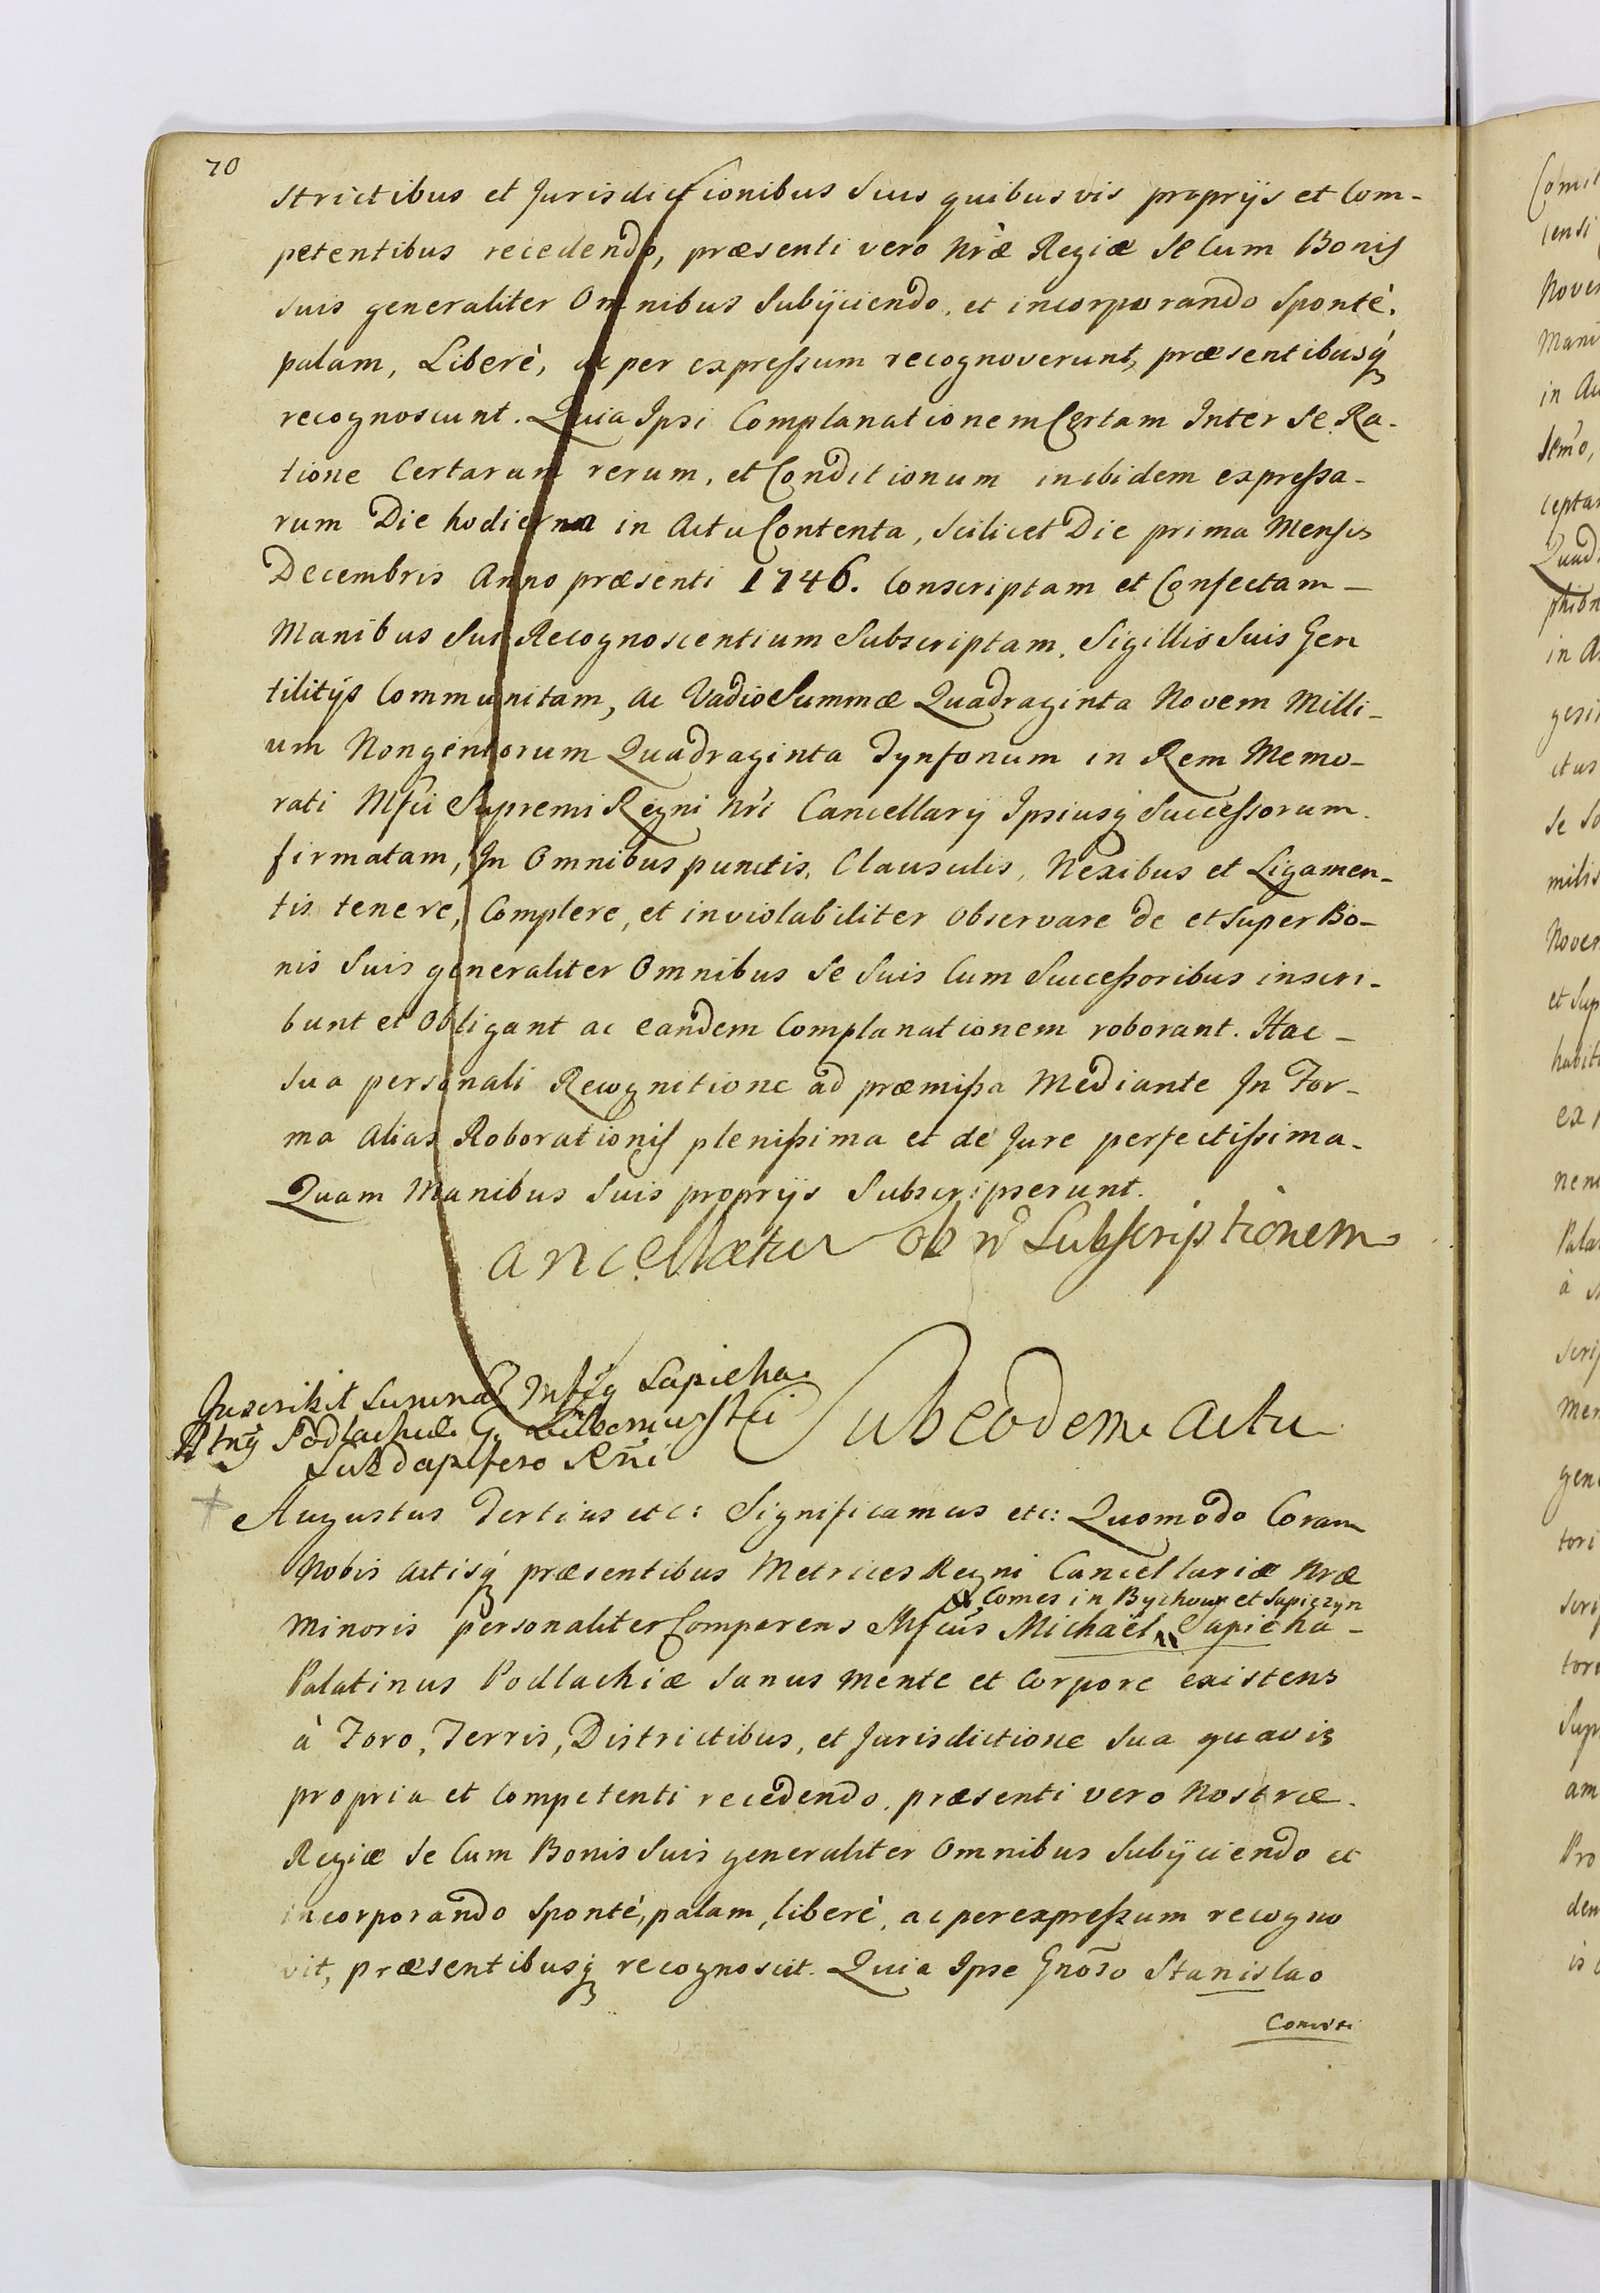 70
strictibus et Jurisdictionibus Suis quibusvis proprijs et Com-
petentibus recedendo, præsenti vero Nræ Regiæ se Cum Bonis
suis generaliter Omnibus Subijciendo, et incorporando Sponté,
palam, Liberè, ac per expressum recognoverunt, præsentibusq́
recognoscunt. Quia Ipsi Complanationem Certam Inter Se Ra-
tione Certarum rerum, et Conditionum inibidem expressa-
rum Die hodierna in Actu Contenta, Scilicet Die prima Mensis
Decembris Anno præsenti 1746. Conscriptam et Confectam –
Manibus Sui Recognoscentium Subscriptam, Sigillis Suis Gen
tilitijs Communitam, ac Vadio Summæ Quadraginta Novem Milli-
um Nongentorum Quadraginta Tynfonum in Rem Memo-
rati Mfci Supremi Regni Nri Cancellarij Ipsiusq́ Successorum.
firmatam, In Omnibus punctis, Clausulis, Nexibus et Ligamen-
tis tenere, Complere, et inviolabiliter observare de et super Bo-
nis Suis generaliter Omnibus se Suis Cum Successoribus inscri-
bunt et Obligant ac eandem Complanationem roborant. Hac –
Sua personali Recognitione ad præmissa Mediante In For-
ma alias Roborationis plenissima et de Jure perfectissima.
Quam Manibus Suis proprijs Subscripserunt.
Cancellatur ob n̊ Subscriptionem
Inscribit Summã Mfcq Sapieha
Pltnq Podlachiæ G.
Subdapifero Rñi
Sub eodem Actu
Augustus Tertius etc: Significamus etc: Quomodo Coram
Nobis Actisq́ præsentibus Metrices Regni Cancellariæ Nræ
Comes in Bychow et Sapiezyn
Minoris personaliter Comparens Mfcus Michaël Sapieha –
Palatinus Podlachiæ Sanus Mente et Corpore existens
à Foro, Terris, Districtibus, et Jurisdictione Sua quavis
propria et Competenti recedendo, præsenti vero Nostræ.
Regiæ Se Cum Bonis Suis generaliter Omnibus Subijciendo et
incorporando Sponté, palam, liberè, ac per expressum recogno
vit, præsentibusq́ recognoscit. Quia Ipse Gnõso Stanislao
Comiti